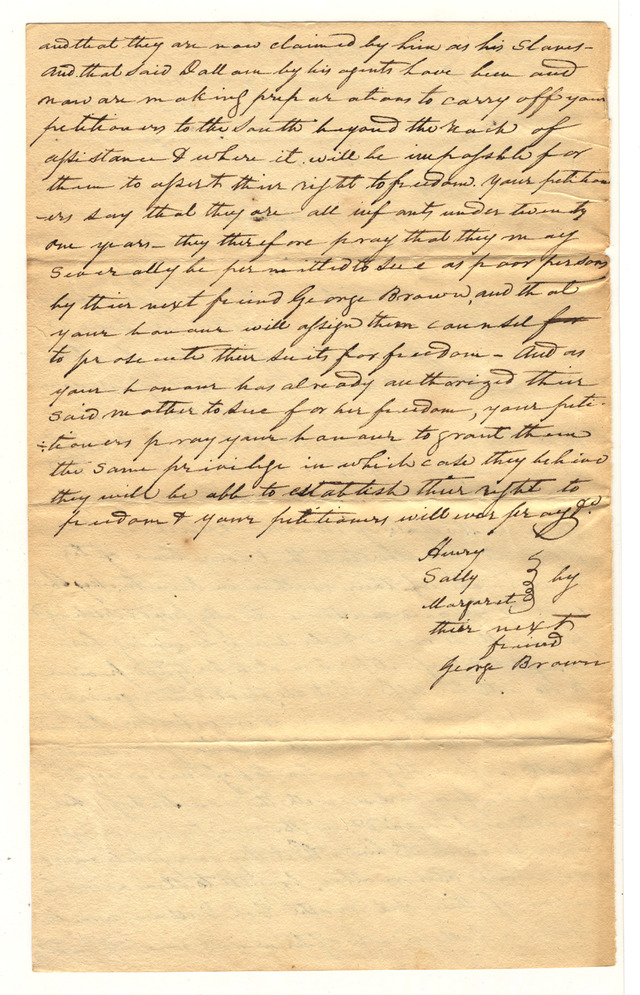 and that they are now claimed by him as his Slaves-
And that said Dallam by his agents have been and
now are making preparations to carry off your
petitioners to the South beyond the reach of
assistance & where it will be impossible for
them to assert their right to freedom. Your petition
-ers say that they are all infants under twenty
one years - they therefore pray that they may
Severally be permitted to sue as poor persons
by thier next friend George Brown, and that
your honour will assign them counsel for
to prosecute their suits for freedom - And as
your honour has already authorized their
said mother to sue for her freedom, your peti-
-tioners pray your honour to grant them
the same privilige in which case they believe
they will be able to establish thier right to
freedom & your petitioners will ever pray &c
Henry
Sally } by
Margaret
thier next
friend
George Brown